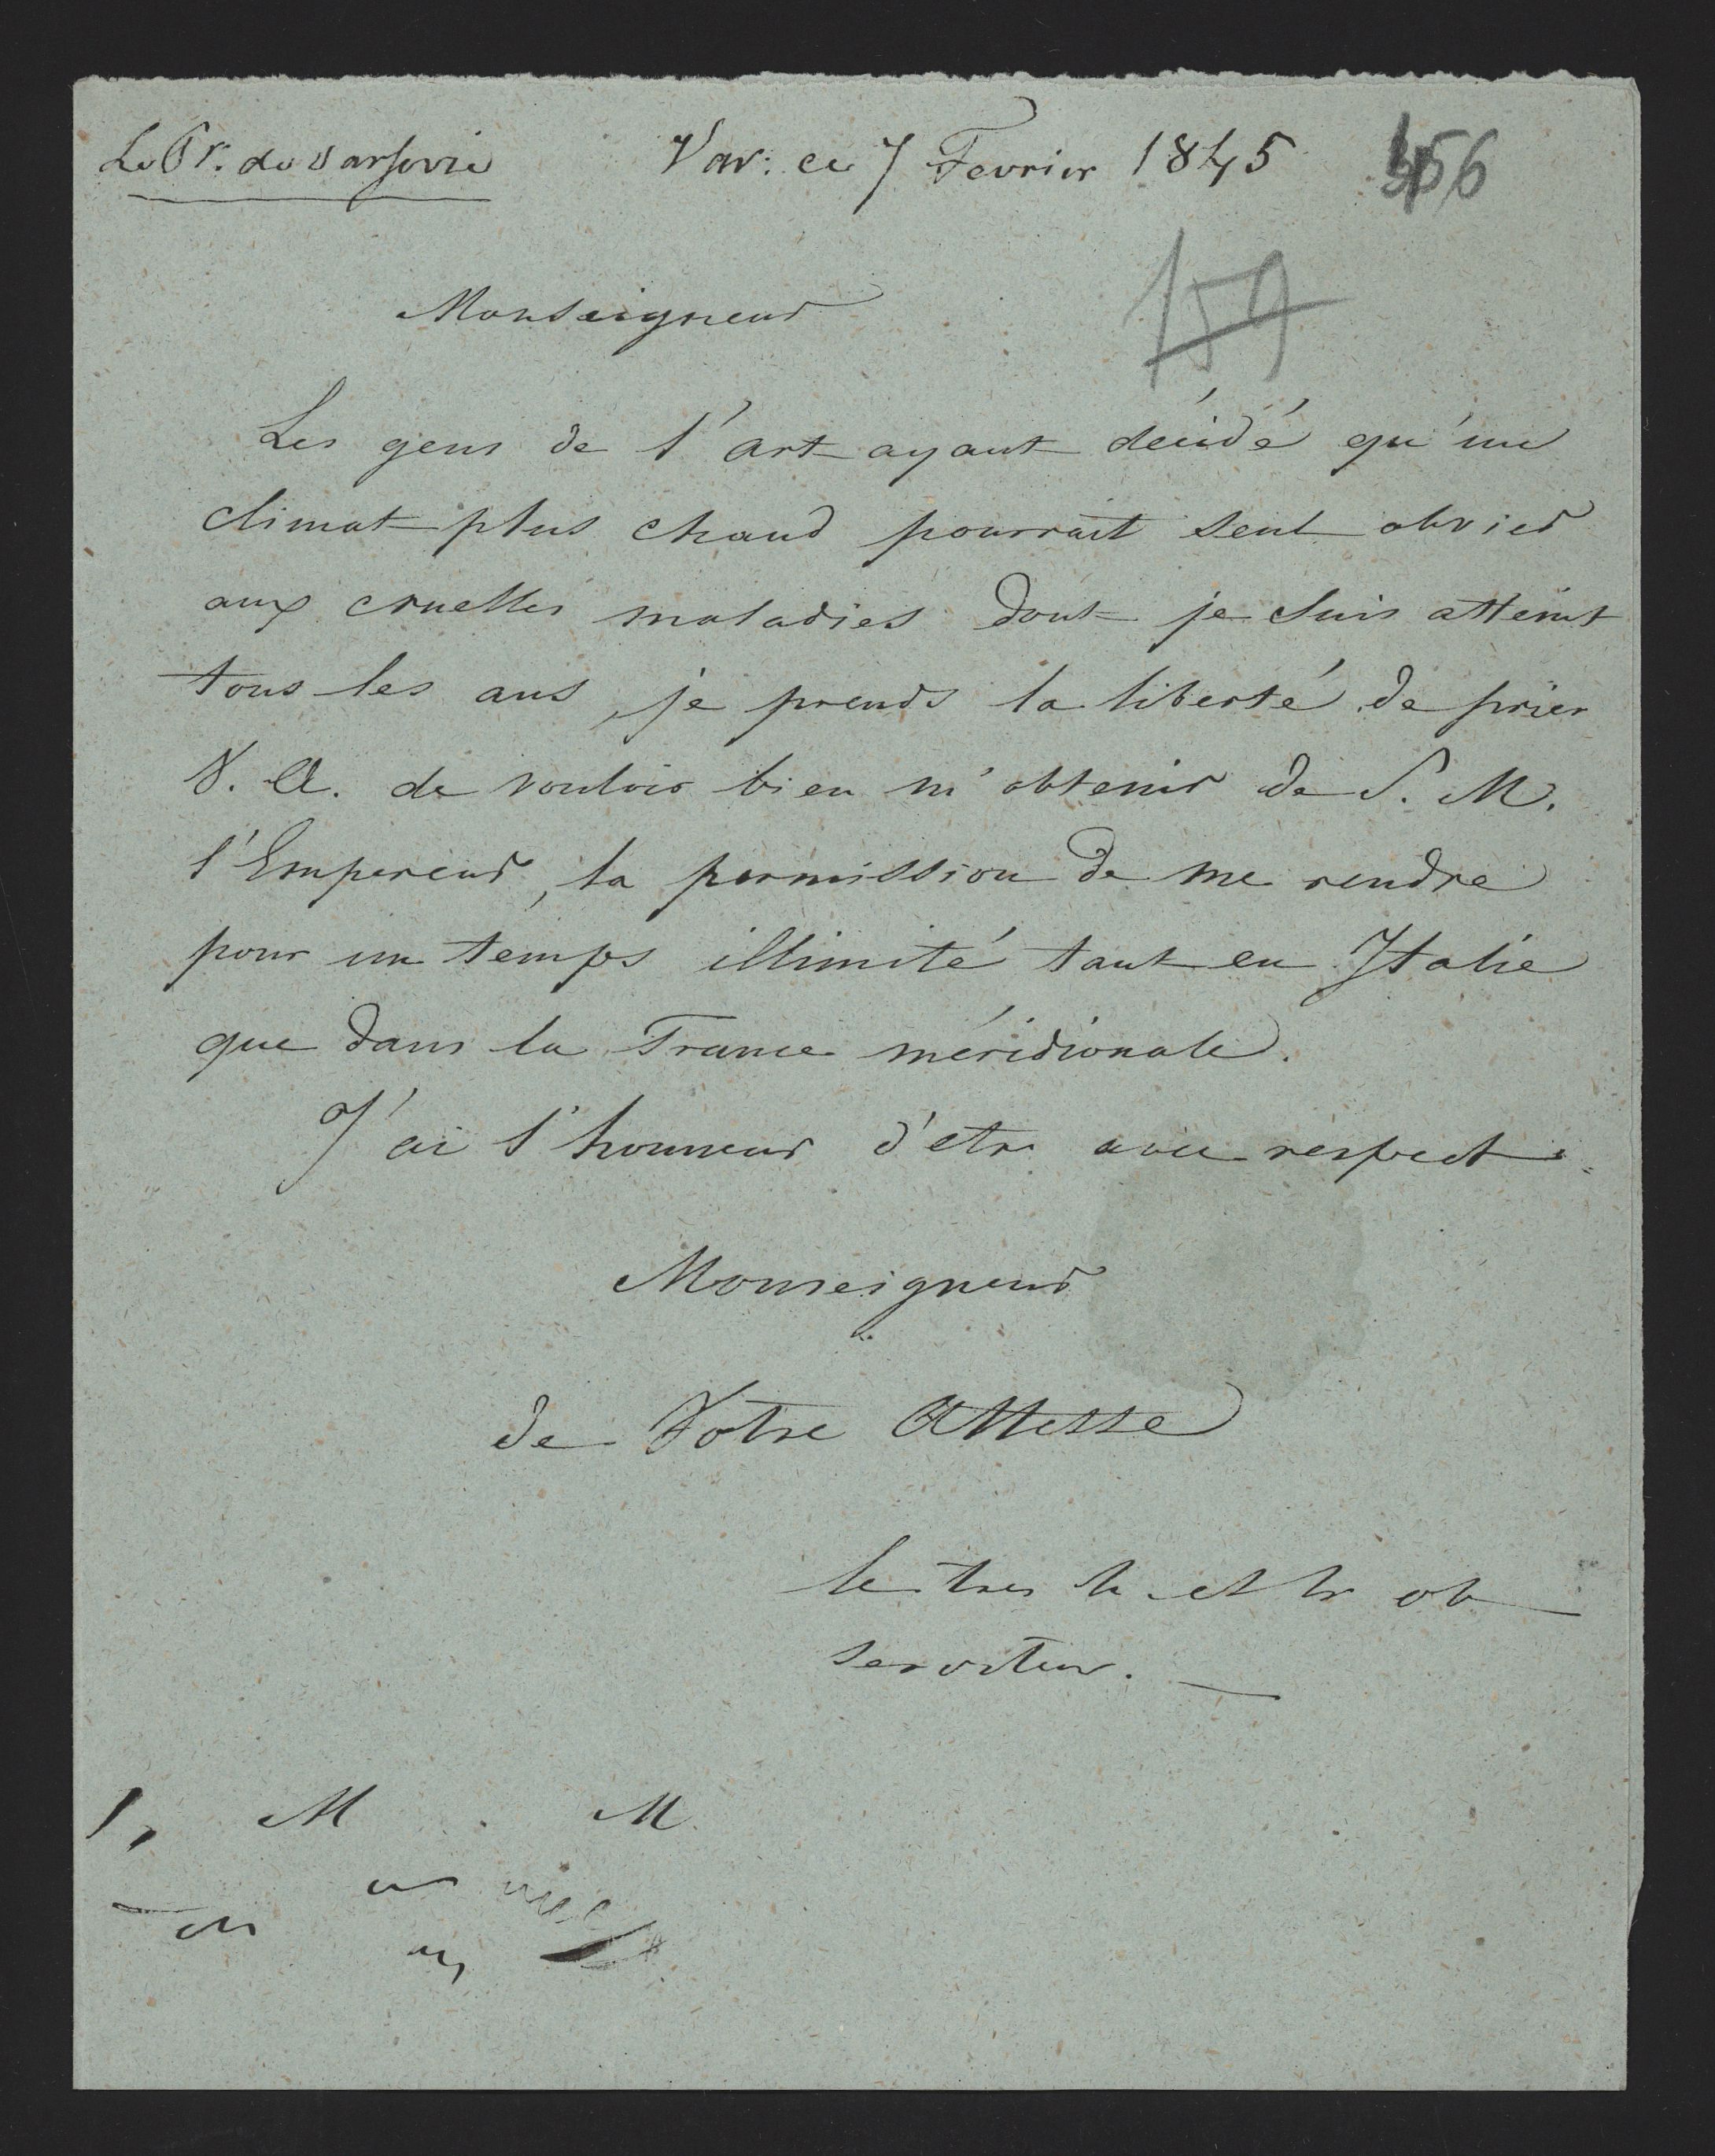 Le Pr. de Varsovie Var: ce 7 Fevrier 1845 456
159
Monseigneur
Les gens de l'art ayant décidé qu'un
climat plus chaud pourrait seul obvier
aux cruelles maladies dont je suis atteint
tous les ans, je prends la liberté de prier
V. A. de vouloir bien m'obtenir de S. M.
l'Empereur, la permission de me rendre
pour un temps illimité tant en Italie
que dans la France méridionale.
J'ai l'honneur d'etre avec respect
Monseigneur
de Votre Altesse
le tres h et tr ob
serviteur.
M M